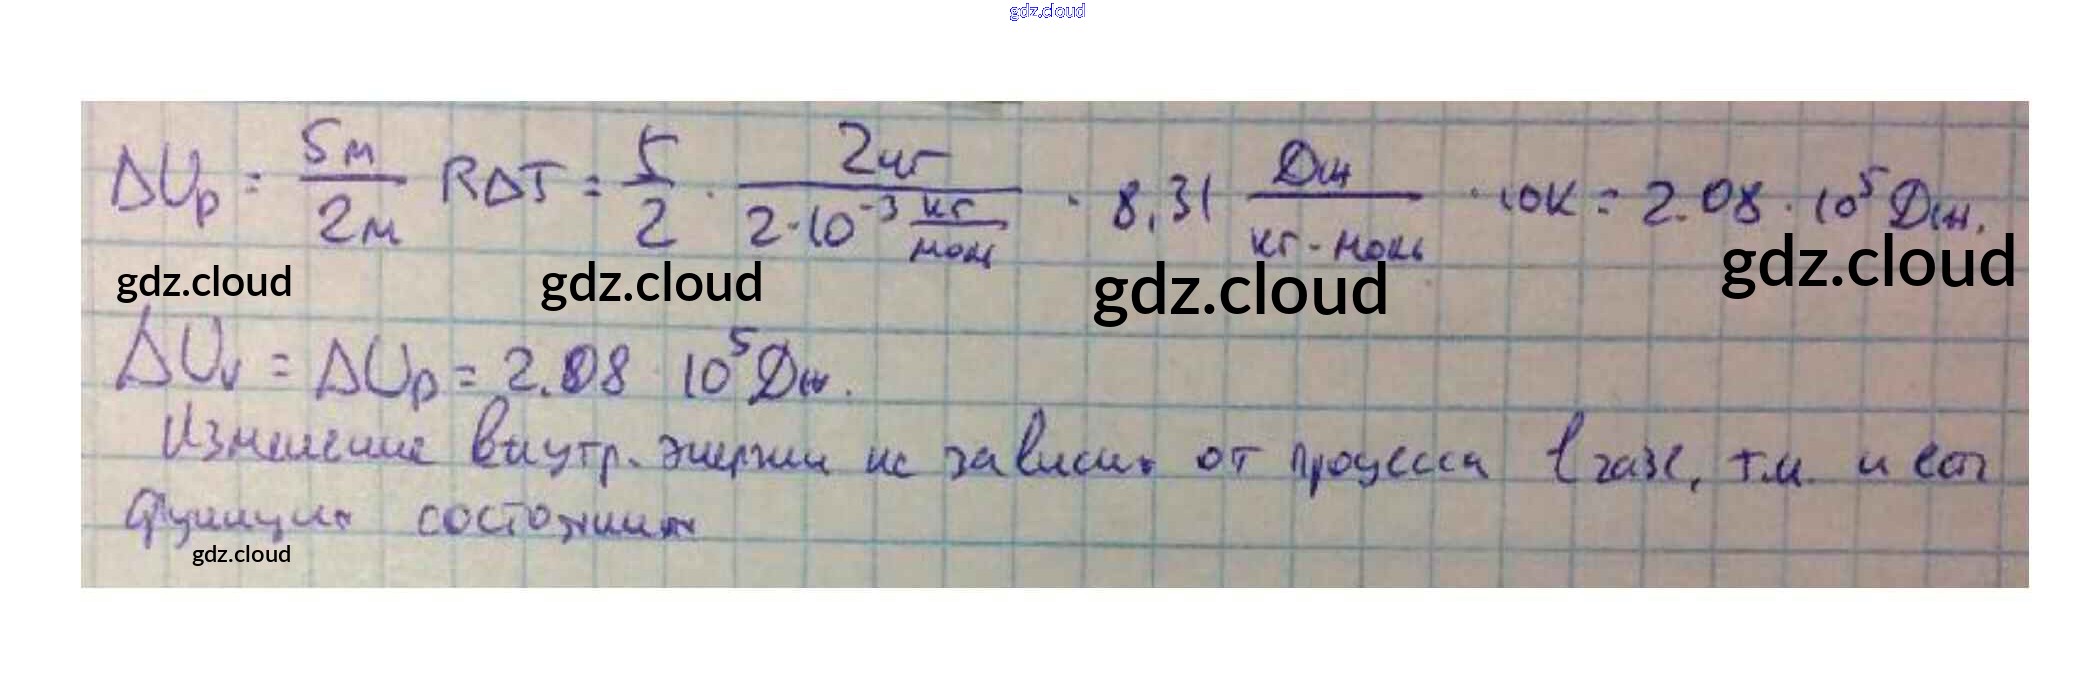 gdz.cloud
ΔUp = 5м/2м RΔT = 5/2 · 2кг/(2·10⁻³ кг/моль) · 8,31 Дж/(кг·моль) · 10К = 2.08 · 10⁵ Дж.
gdz.cloud gdz.cloud gdz.cloud gdz.cloud
ΔUv = ΔUp = 2.08 · 10⁵ Дж.
Изменение внутр. энергии не зависит от процесса в газе, т.к. и есть
функция состояния
gdz.cloud